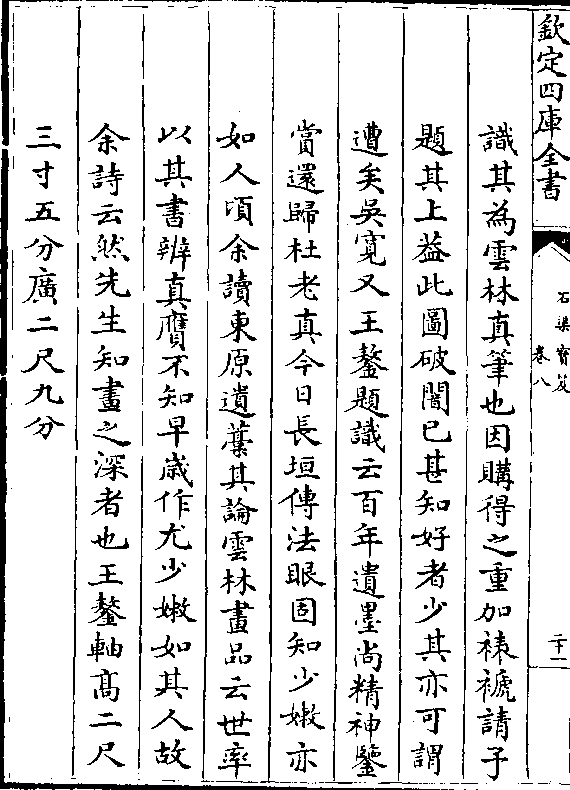 欽定四庫全書
石渠寶笈
卷八
二十一
識其為雲林真筆也因購得之重加裱褫請予
題其上葢此圖破闇已甚知好者少其亦可謂
遭矣吳寛又王鏊題識云百年遺墨尚精神鑒
賞還歸杜老真今日長垣傳法眼固知少嫩亦
如人頃余讀東原遺藁其論雲林畫品云世率
以其書辨真贗不知早歳作尤少嫩如其人故
余詩云然先生知畫之深者也王鏊軸髙二尺
三寸五分廣二尺九分